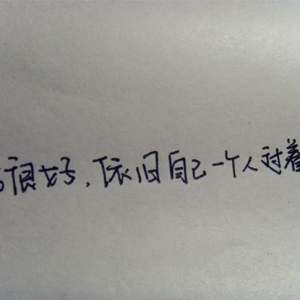 很好，依旧自己一个人对着